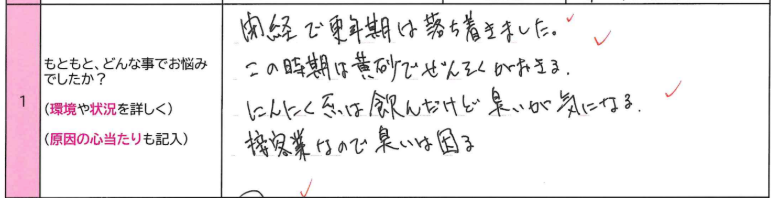 1
もともと、どんな事でお悩み
でしたか？
（環境や状況を詳しく）
（原因の心当たりも記入）
閉経で更年期は落ち着きました。
この時期は黄砂でぜんそくがおきる.
にんにく系は飲んだけど臭いが気になる.
接客業なので臭いは困る